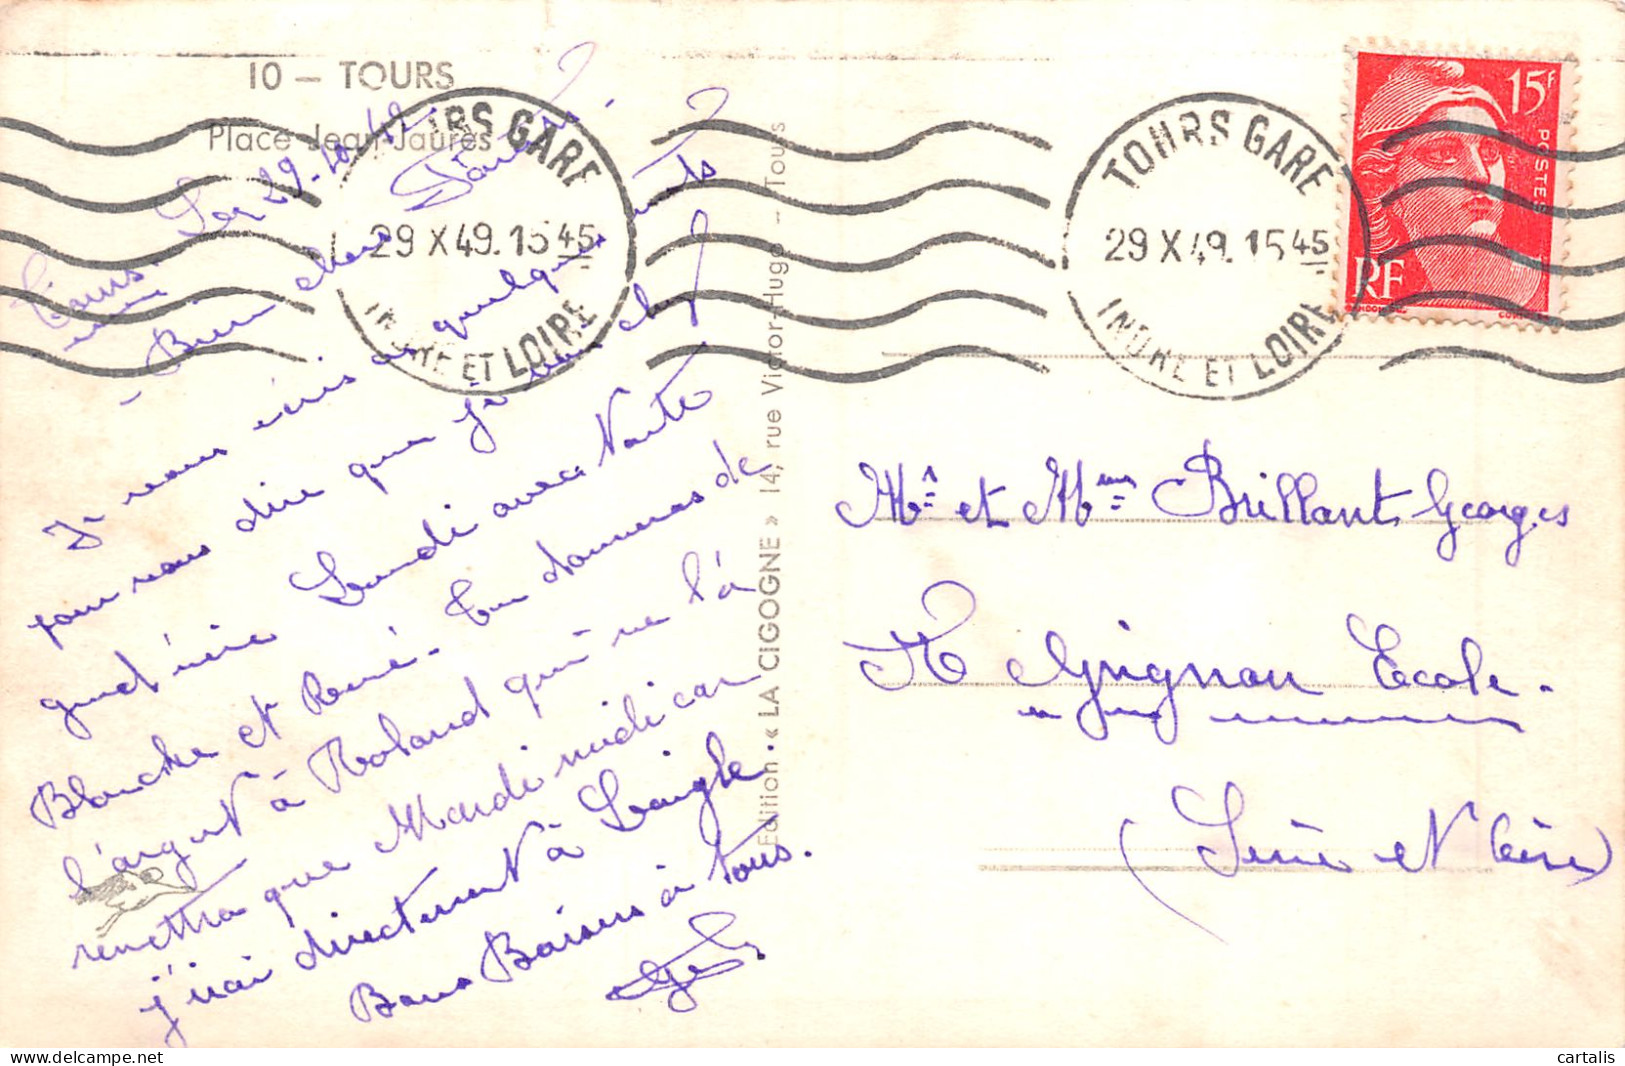 10 - TOURS
Place Jean Jaurès
TOURS GARE
29 X 49. 15 45
INDRE ET LOIRE
TOURS GARE
29 X 49. 15 45
INDRE ET LOIRE
15F
POSTES
RF
Tours. Le 29-10-49
- Bien chers
Je vous écris ces quelques mots
pour vous dire que j'ai bien
Lundi avec
Blanche et René. Tu donneras de
l'argent à Roland qui ne l'a
remettra que Mardi midi car
j'irai directement à Laigle.
Bons Baisers à tous.
Edition « LA CIGOGNE » 14, rue Victor-Hugo - Tours
Mr et Mme Brillant Georges
Grignon Ecole.
(Seine et Oise)
cartalis